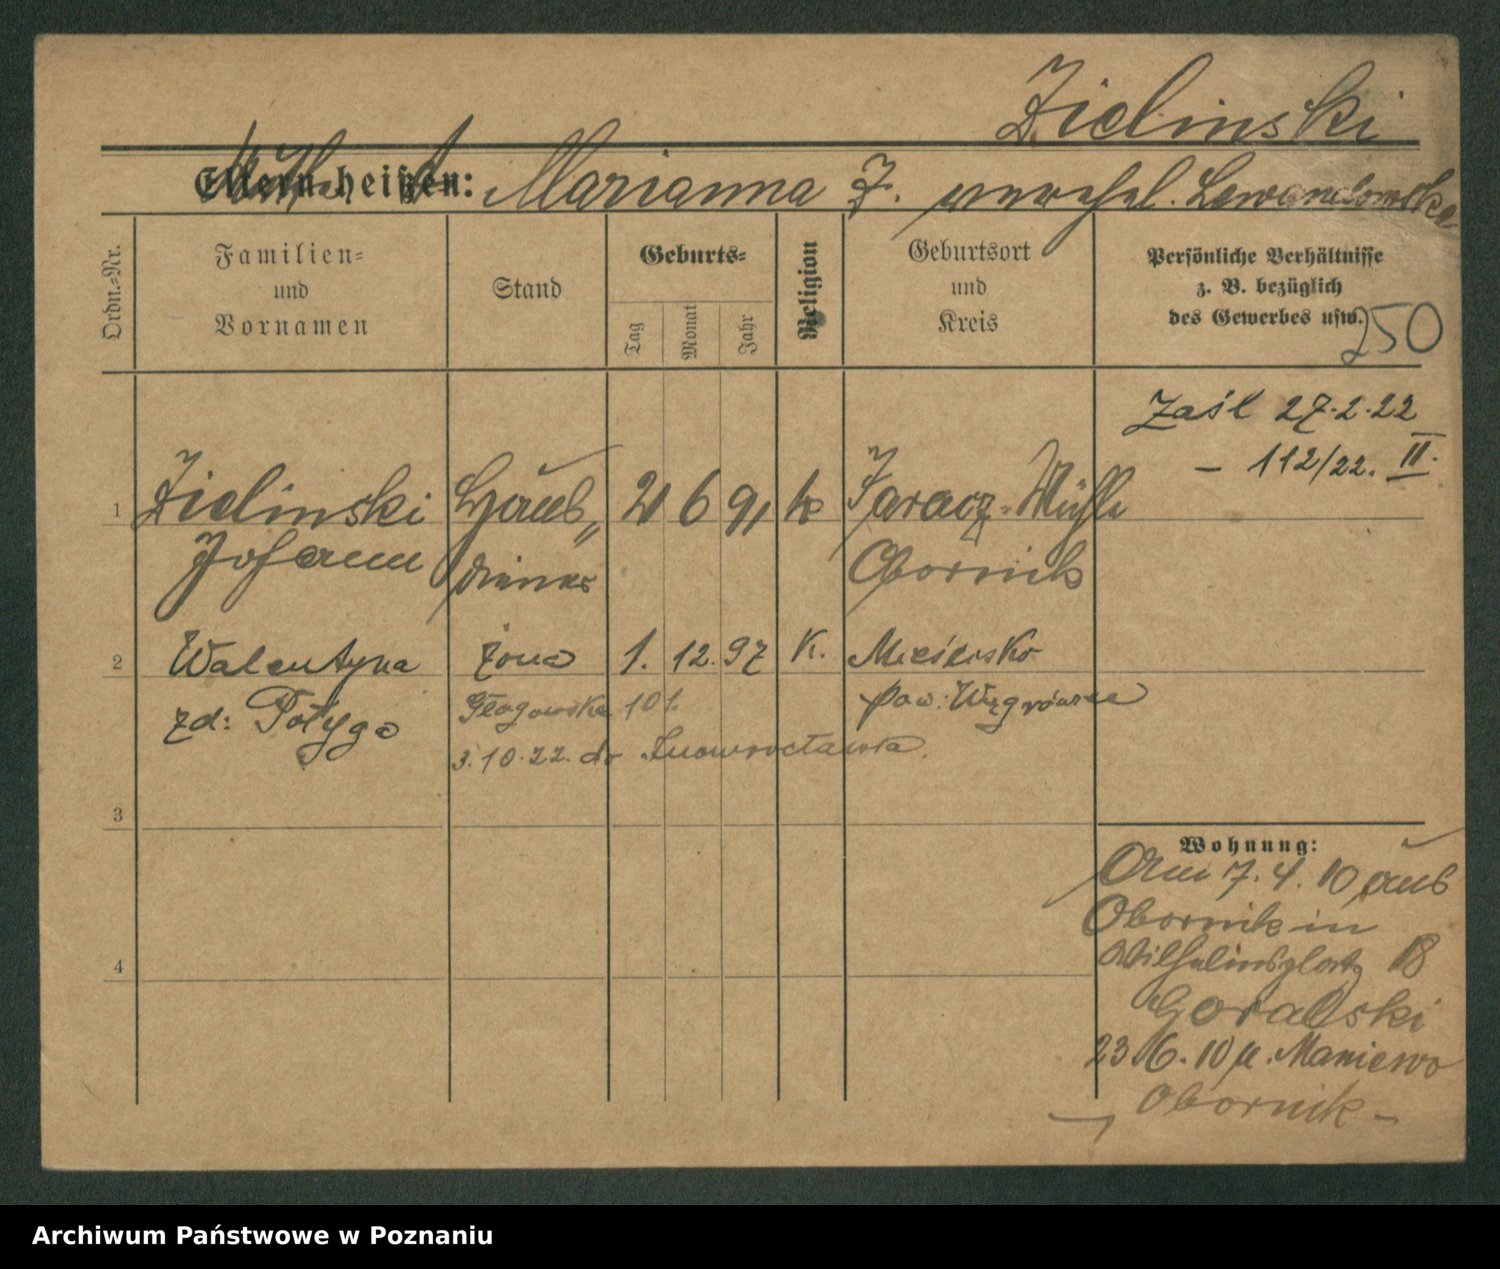 Zielinski
Eltern heißen: Marianna Z. verehel. Lewandowska
Ordn.-Nr.
Familien- und Vornamen
Stand
Geburts-
Tag
Monat
Jahr
Religion
Geburtsort und Kreis
Persönliche Verhältnisse
z. B. bezüglich
des Gewerbes usw.
250
Zaśl 27.2.22
– 112/22. II.
1 Zielinski Haus„ 21 6 91 k Jaracz-Mühle
Johann diener Obornik
2 Walentyna żona 1. 12. 97 K. Mieścisko
zd: Połyga Głogowska 101. pow. Wągrówiec
3.10.22. do Inowrocławia.
3
4
Wohnung:
Am 7.4.10 aus
Obornik in
Wilhelmsplatz 18
Goralski
23 6. 10 n. Maniewo
Obornik –
Archiwum Państwowe w Poznaniu